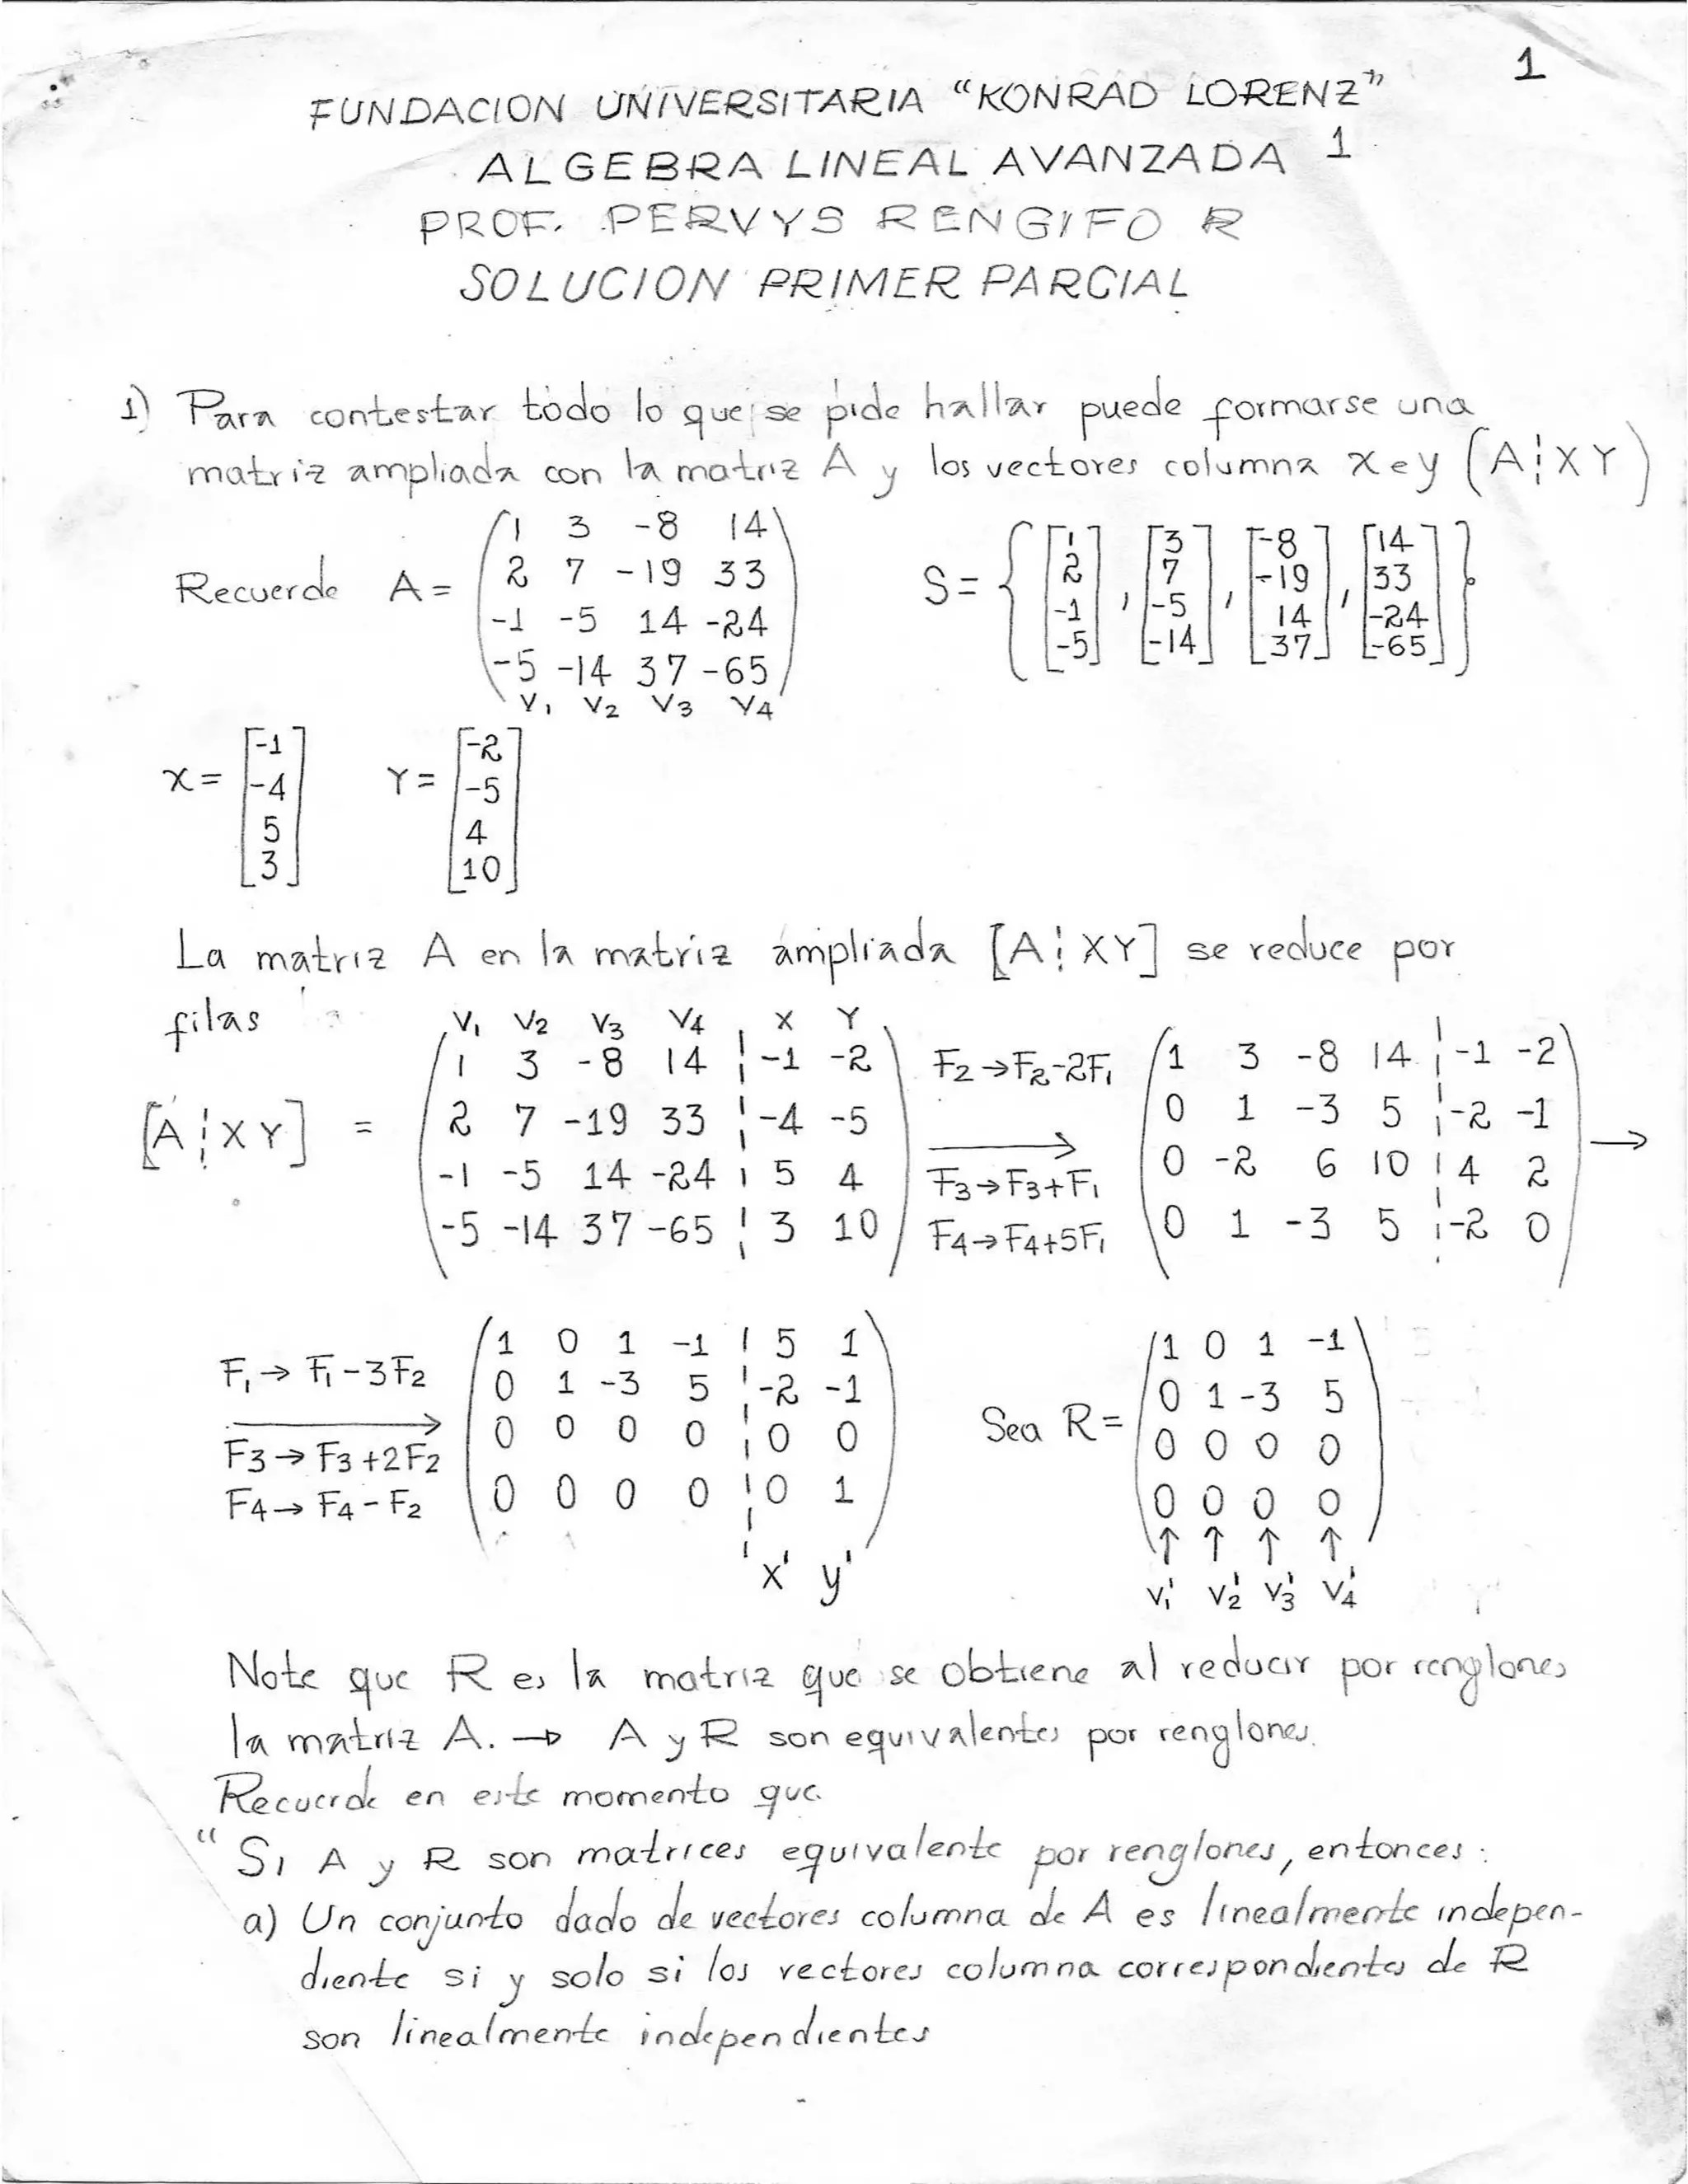 1
FUNDACION UNIVERSITARIA "KONRAD LORENZ"
ALGEBRA LINEAL AVANZADA 1
PROF. PERVYS RENGIFO R
SOLUCION PRIMER PARCIAL
1) Para contestar todo lo que se pide hallar puede formarse una
matriz ampliada con la matriz A y los vectores columna x e y (A¦XY)
Recuerde A = (1 3 -8 14
2 7 -19 33
-1 -5 14 -24
-5 -14 37 -65)
V1 V2 V3 V4
S = { [1 2 -1 -5], [3 7 -5 -14], [-8 -19 14 37], [14 33 -24 -65] }.
X = [-1 -4 5 3] Y = [-2 -5 4 10]
La matriz A en la matriz ampliada [A¦XY] se reduce por
filas
V1 V2 V3 V4 X Y
[A¦XY] = (1 3 -8 14 ¦ -1 -2
2 7 -19 33 ¦ -4 -5
-1 -5 14 -24 ¦ 5 4
-5 -14 37 -65 ¦ 3 10)
F2→F2-2F1
F3→F3+F1
F4→F4+5F1
(1 3 -8 14 ¦ -1 -2
0 1 -3 5 ¦ -2 -1
0 -2 6 10 ¦ 4 2
0 1 -3 5 ¦ -2 0) →
F1→F1-3F2
F3→F3+2F2
F4→F4-F2
(1 0 1 -1 ¦ 5 1
0 1 -3 5 ¦ -2 -1
0 0 0 0 ¦ 0 0
0 0 0 0 ¦ 0 1)
x' y'
Sea R = (1 0 1 -1
0 1 -3 5
0 0 0 0
0 0 0 0)
↑ ↑ ↑ ↑
V1' V2' V3' V4'
Note que R es la matriz que se obtiene al reducir por renglones
la matriz A. → A y R son equivalentes por renglones.
Recuerde en este momento que.
"Si A y R son matrices equivalente por renglones, entonces:
a) Un conjunto dado de vectores columna de A es linealmente indepen-
diente si y solo si los vectores columna correspondientes de R
son linealmente independientes